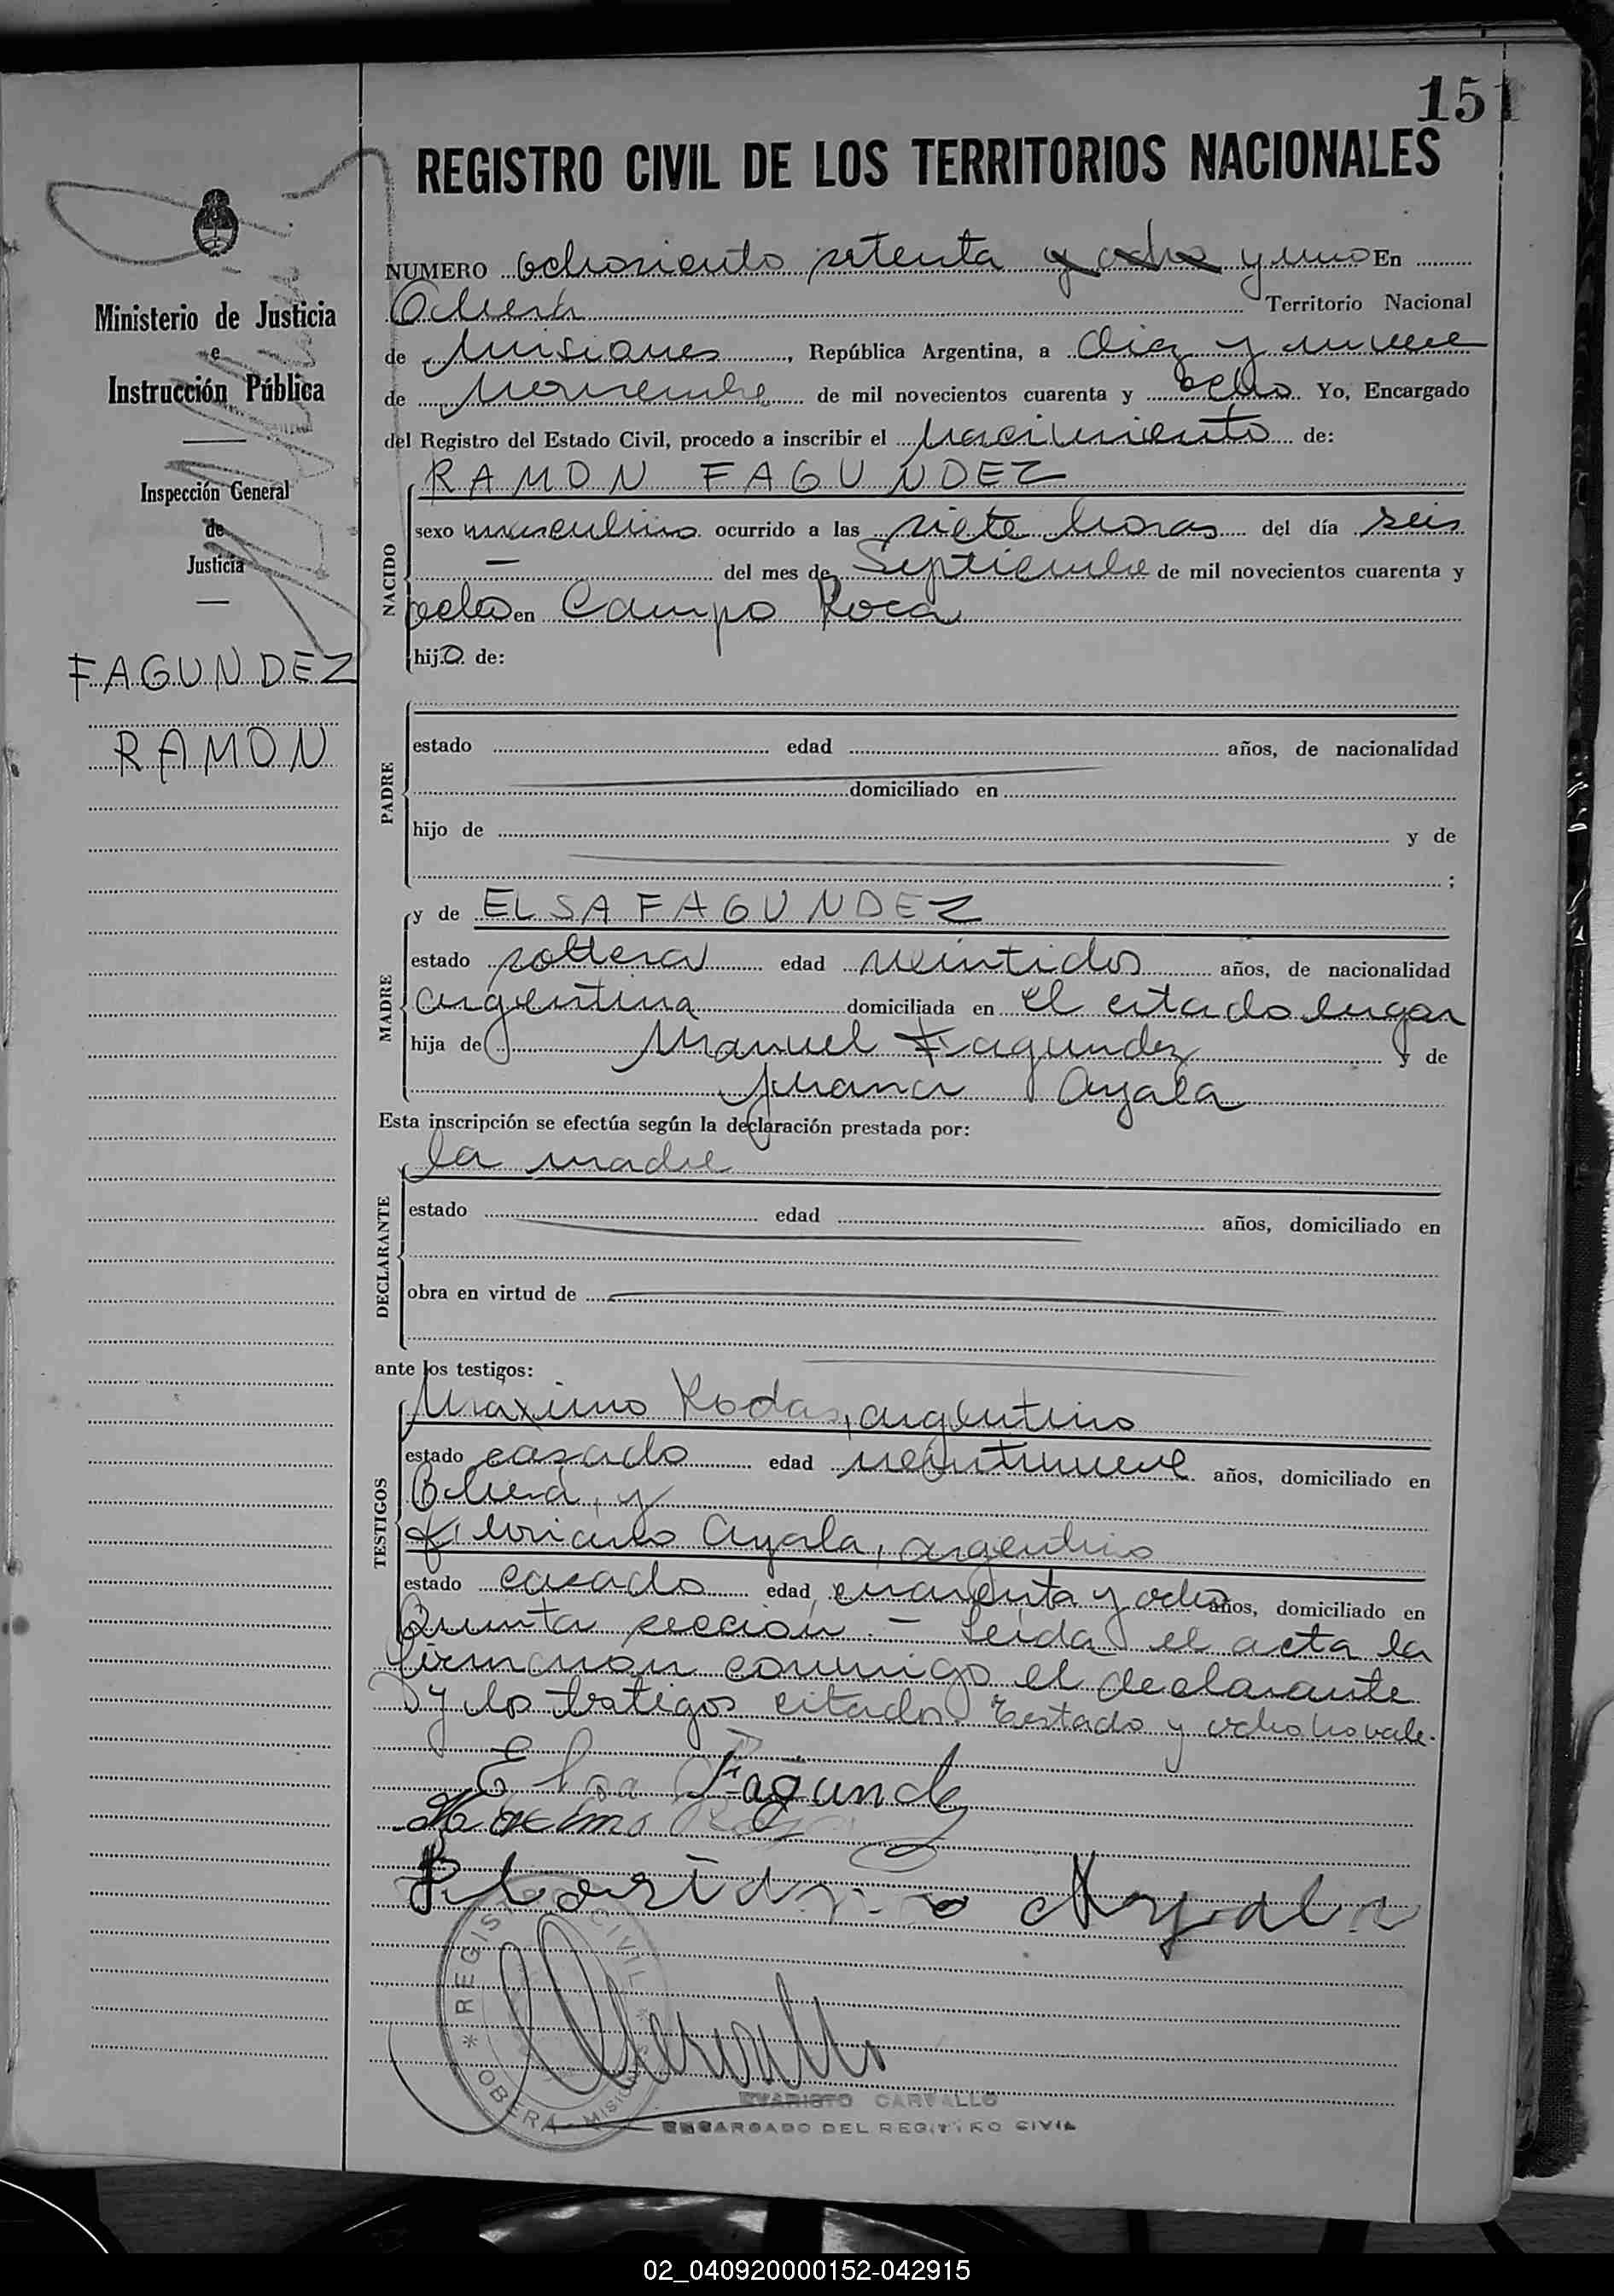 151
REGISTRO CIVIL DE LOS TERRITORIOS NACIONALES
NUMERO ochosiento setenta y ocho y uno En
Oberá Territorio Nacional
de Misiones, República Argentina, a diez y nueve
de Noviembre de mil novecientos cuarenta y ocho Yo, Encargado
del Registro del Estado Civil, procedo a inscribir el nacimiento de:
RAMON FAGUNDEZ
NACIDO
sexo masculino ocurrido a las siete horas del día seis
— del mes de Septiembre de mil novecientos cuarenta y
ocho en Campo Roca
hijo de:
PADRE
estado edad años, de nacionalidad
domiciliado en
hijo de y de
;
y de ELSA FAGUNDEZ
MADRE
estado soltera edad veintidos años, de nacionalidad
argentina domiciliada en el citado lugar
hija de Manuel Fagundez y de
Juana Ayala
Esta inscripción se efectúa según la declaración prestada por:
la madre
DECLARANTE
estado edad años, domiciliado en
obra en virtud de
ante los testigos:
Maximo Rodas, argentino
TESTIGOS
estado casado edad veintinueve años, domiciliado en
Oberá, y
Floriano Ayala, argentino
estado casado edad cuarenta y ocho años, domiciliado en
Quinta sección. — Leida el acta la
firmaron conmigo el declarante
y los testigos citados. Testado y ocho no vale.
Elsa Fagundez
Maximo
Ayala
REGIS CIVIL
* OBERA - MISIONES *
EVARISTO CARVALLO
ENCARGADO DEL REGISTRO CIVIL
Ministerio de Justicia
e
Instrucción Pública
Inspección General
de
Justicia
FAGUNDEZ
RAMON
02_040920000152-042915